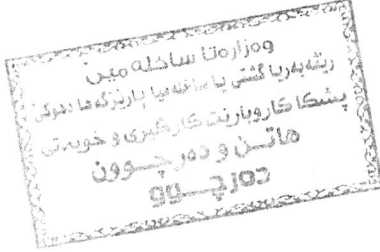 وەزارەتا ساخلەمیێ
ریڤەبەریا گشتی یا ساخلەمیا پارێزگەها دهوکێ
پشکا کاروبارێت کارگێری و خوبەتی
هاتن و دەرچوون
دەرچوو